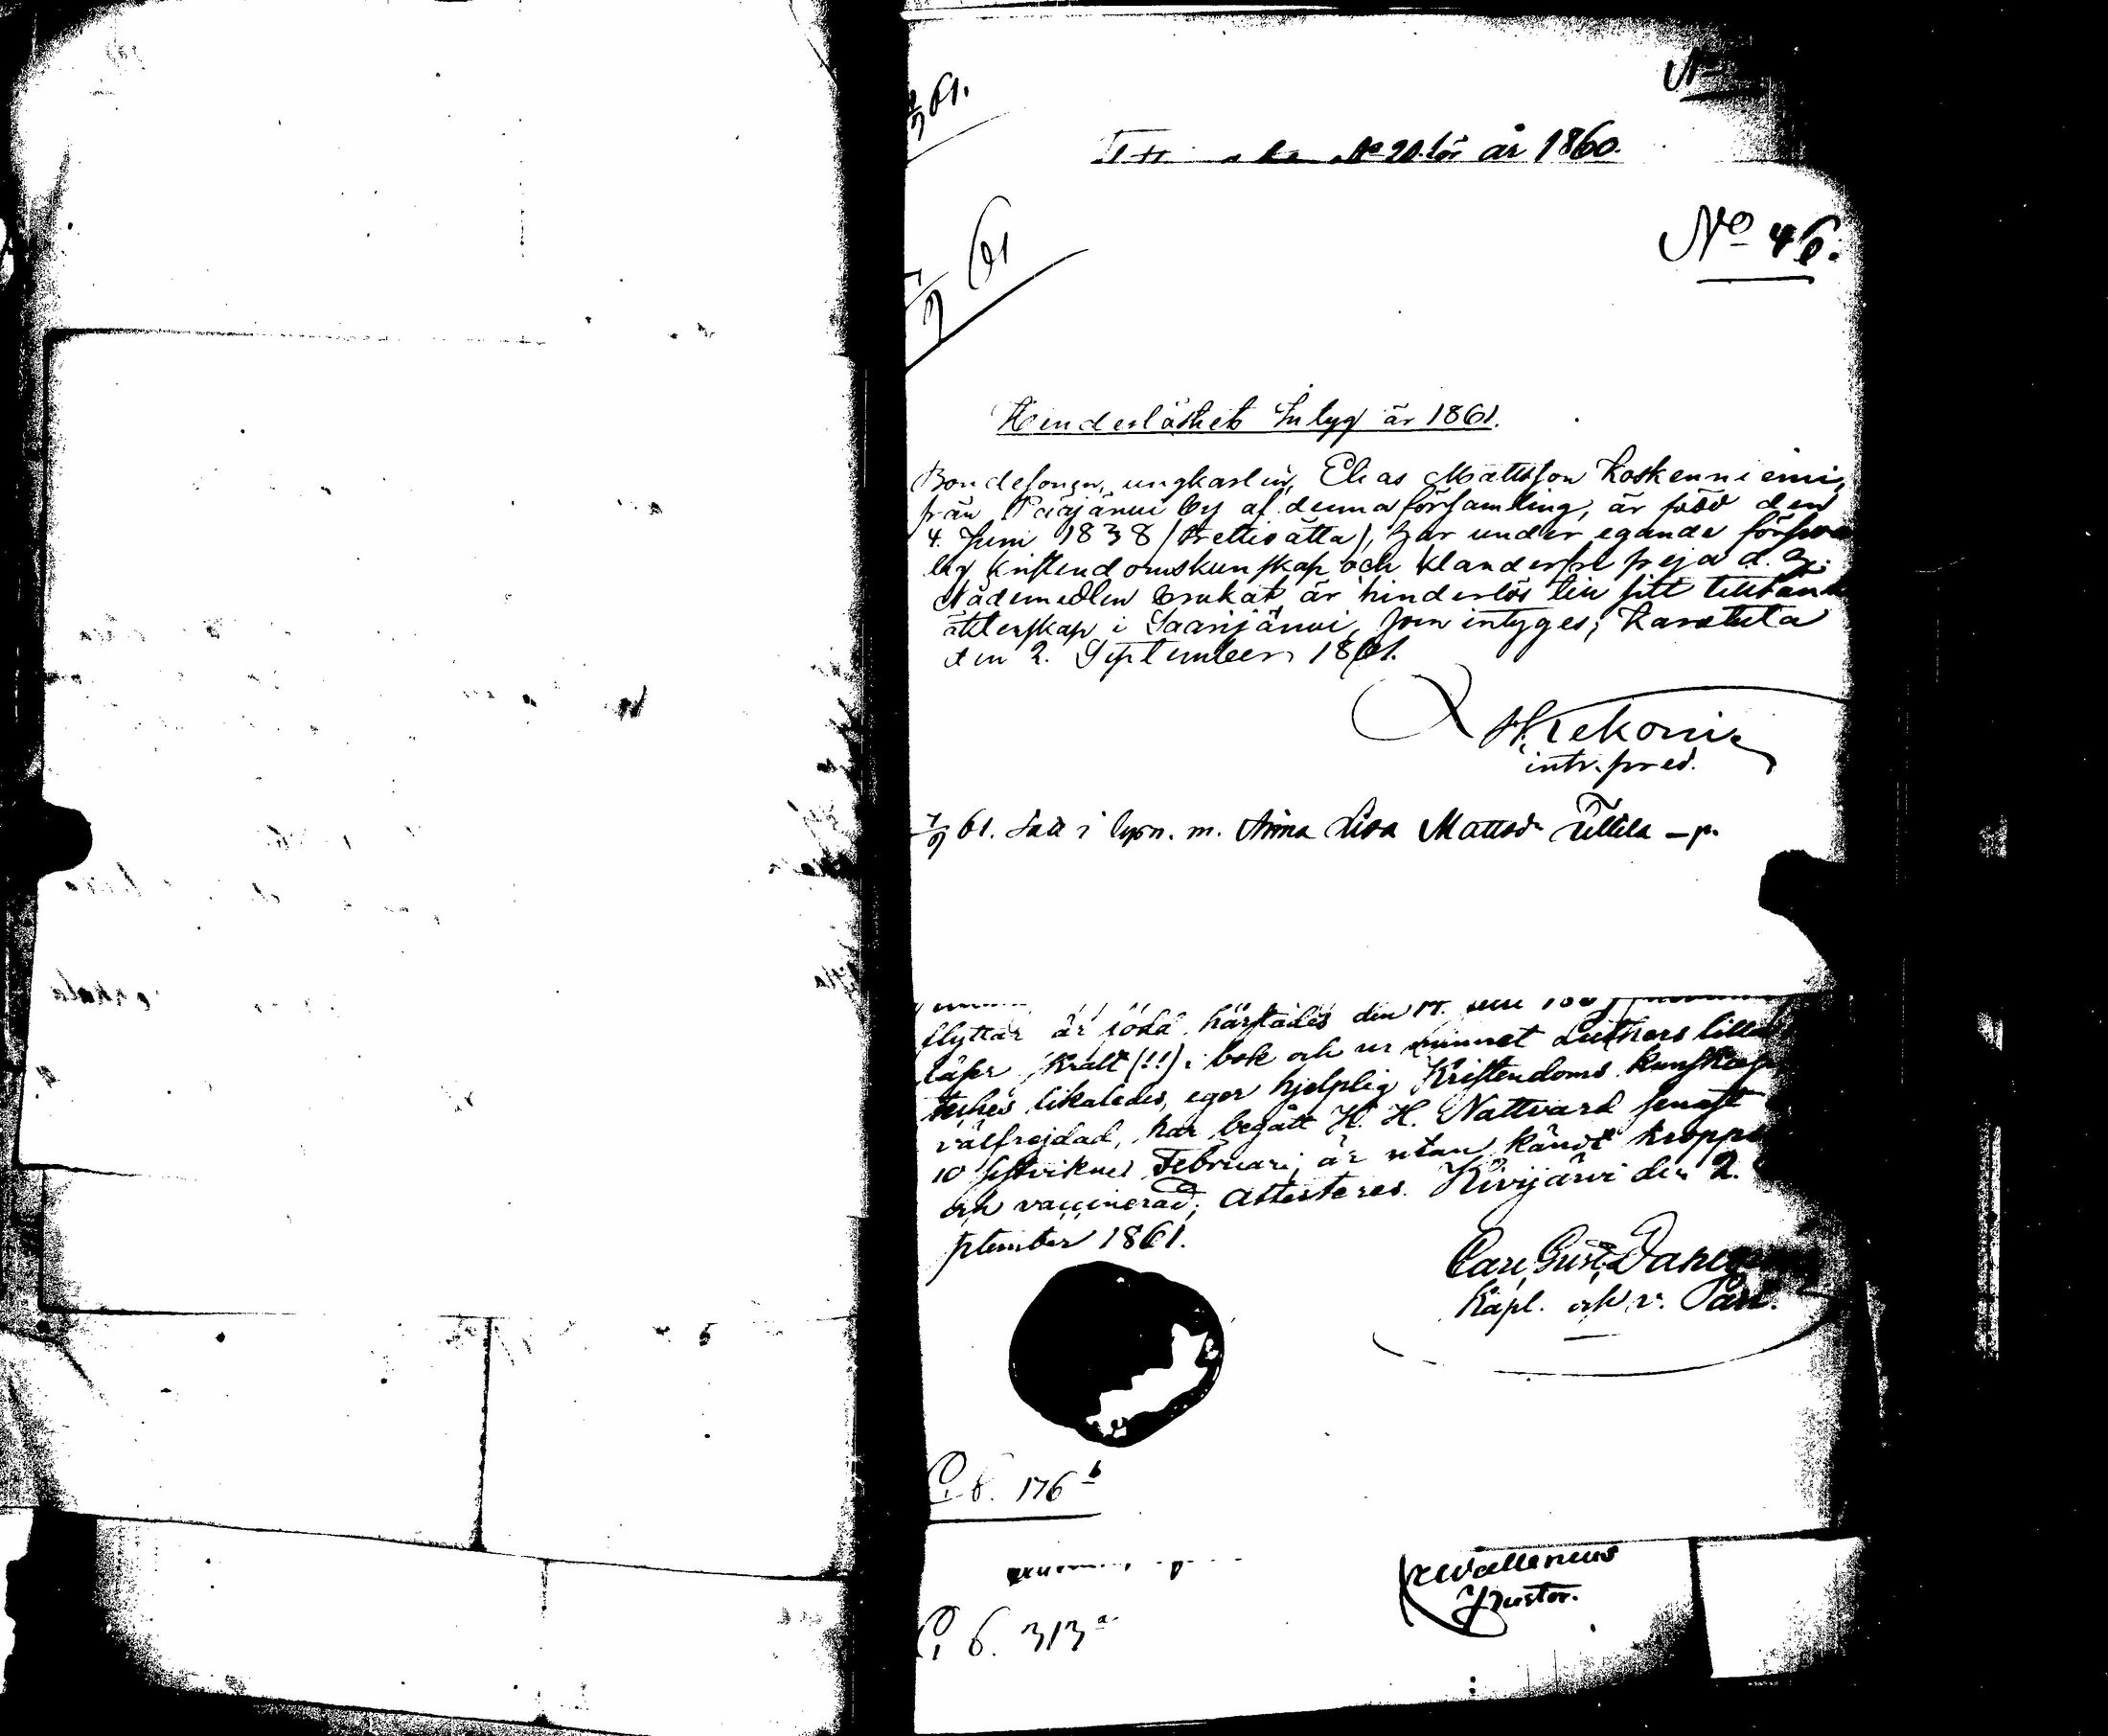 61.
N
No 20 för år 1860.
No 46.
7/9 61
Hinderlöshets Intyg år 1861.
Bondesonen, ungkarlen, Elias Mattsson Koskenniemi,
från Pääjärvi by af denna församling, är född den
4. Juni 1838 (trettioåtta), har under egande försvar
lig kristendomskunskap och klanderfri frejd d. H.
Nådemedlen brukat är hinderlös till sitt tilltänkta
äktenskap i Saarijärvi, som intyges; Karstula
den 2. September 1861.
H Rekonius
intr. pred.
7/9 61. Satt i lysn. m. Anna Lisa Mattsdr Tillila
flyttar är född härstädes den 17.
läser svalt (!!) i bok och ur minnet Luthers lilla
teches likaledes, eger hjelplig Kristendoms kunskap
välfrejdad, har begått H. H. Nattvard senast
10 sistvikne Februari, är utan kändt kropps
och vaccinerad; attesteres. Kivijärvi den 2.
ptember 1861.
Carl Gust.
Kapl. och v. Past.
C. 6. 176 b
Wallenius
Prostor.
C. 6. 313 a